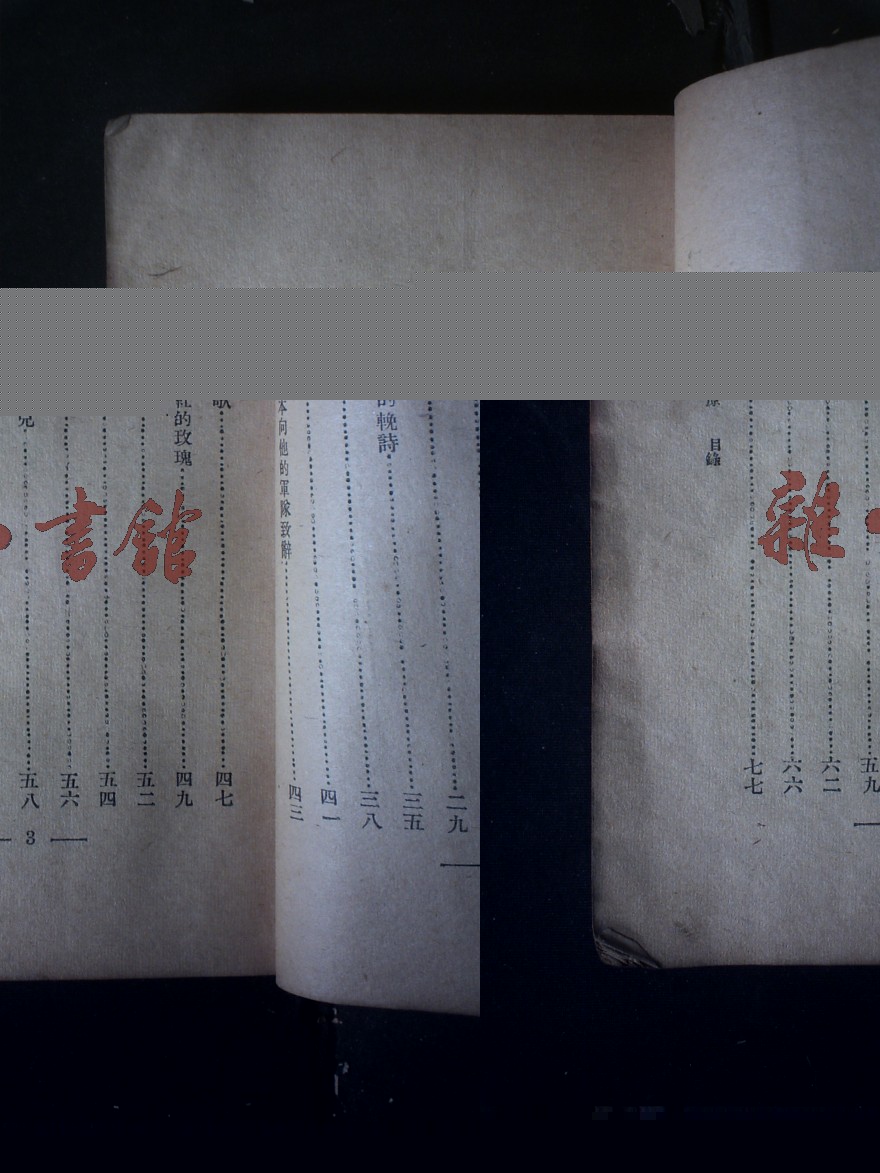 的輓詩
二九
三五
三八
四一
本向他的軍隊致辭
四三
四七
紅的玫瑰
四九
五二
五四
五六
五八
3
目錄
五九
六二
六六
七七
書館
雜